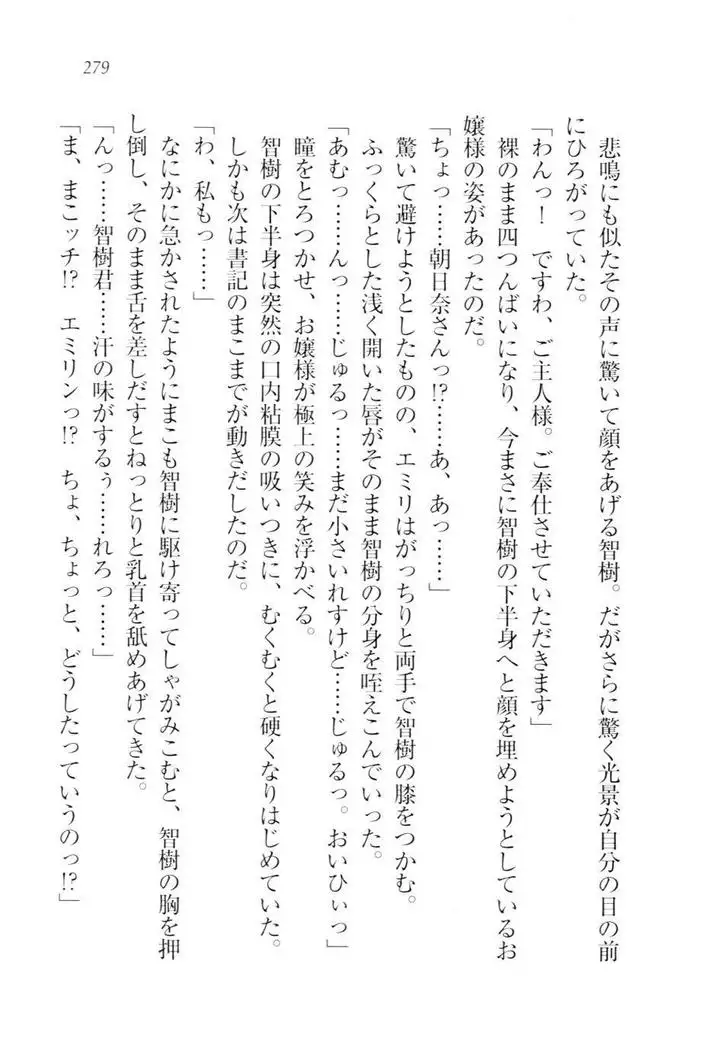 279
悲鳴にも似たその声に驚いて顔をあげる智樹。だがさらに驚く光景が自分の目の前
にひろがっていた。
「わんっ！　ですわ、ご主人様。ご奉仕させていただきます」
裸のまま四つんばいになり、今まさに智樹の下半身へと顔を埋めようとしているお
嬢様の姿があったのだ。
「ちょっ……朝日奈さんっ!?……あ、あっ……」
驚いて避けようとしたものの、エミリはがっちりと両手で智樹の膝をつかむ。
ふっくらとした浅く開いた唇がそのまま智樹の分身を咥えこんでいった。
「あむっ……んっ……じゅるっ……まだ小さいれすけど……じゅるっ。おいひぃっ」
瞳をとろつかせ、お嬢様が極上の笑みを浮かべる。
智樹の下半身は突然の口内粘膜の吸いつきに、むくむくと硬くなりはじめていた。
しかも次は書記のまこまでが動きだしたのだ。
「わ、私もっ……」
なにかに急かされたようにまこも智樹に駆け寄ってしゃがみこむと、智樹の胸を押
し倒し、そのまま舌を差しだすとねっとりと乳首を舐めあげてきた。
「んっ……智樹君……汗の味がするぅ……れろっ……」
「ま、まこッチ!?　エミリンっ!?　ちょ、ちょっと、どうしたっていうのっ!?」